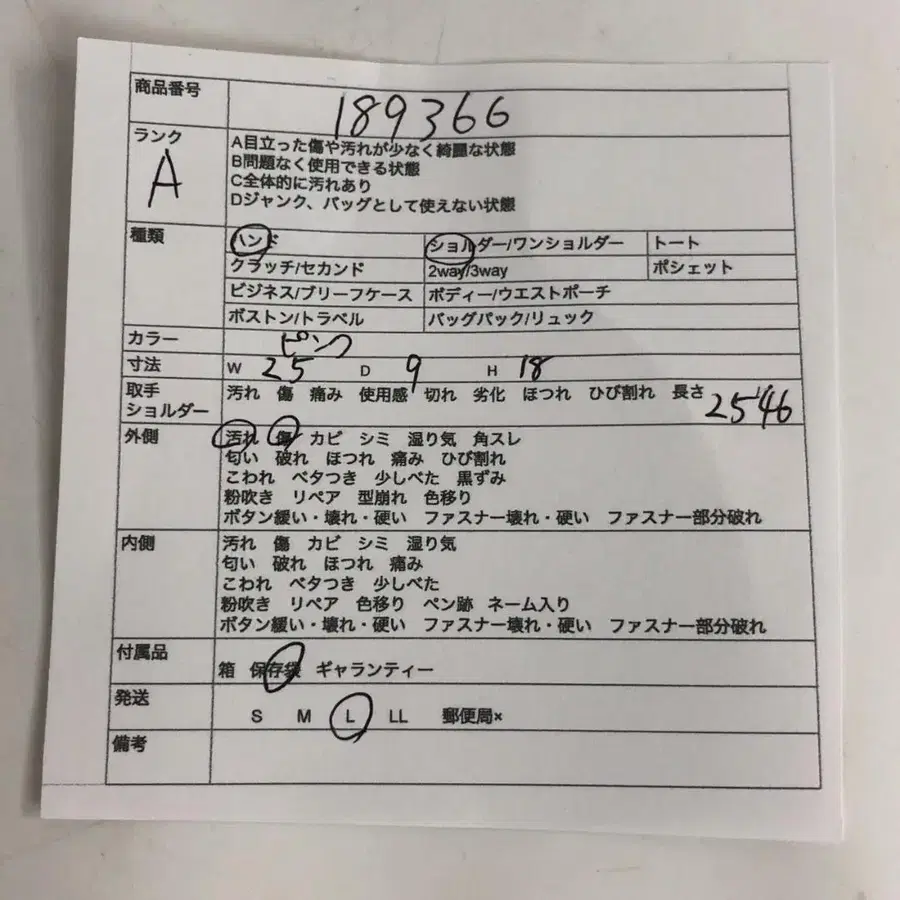 商品番号 189366
ランク A
A目立った傷や汚れが少なく綺麗な状態
B問題なく使用できる状態
C全体的に汚れあり
Dジャンク、バッグとして使えない状態
種類 ハンド ショルダー/ワンショルダー トート
クラッチ/セカンド 2way/3way ポシェット
ビジネス/ブリーフケース ボディー/ウエストポーチ
ボストン/トラベル バッグパック/リュック
カラー ピンク
寸法 W 25 D 9 H 18
取手 汚れ 傷 痛み 使用感 切れ 劣化 ほつれ ひび割れ 長さ
ショルダー 25 46
外側 汚れ 傷 カビ シミ 湿り気 角スレ
匂い 破れ ほつれ 痛み ひび割れ
こわれ ベタつき 少しべた 黒ずみ
粉吹き リペア 型崩れ 色移り
ボタン緩い・壊れ・硬い ファスナー壊れ・硬い ファスナー部分破れ
内側 汚れ 傷 カビ シミ 湿り気
匂い 破れ ほつれ 痛み
こわれ ベタつき 少しべた
粉吹き リペア 色移り ペン跡 ネーム入り
ボタン緩い・壊れ・硬い ファスナー壊れ・硬い ファスナー部分破れ
付属品 箱 保存袋 ギャランティー
発送 S M L LL 郵便局×
備考